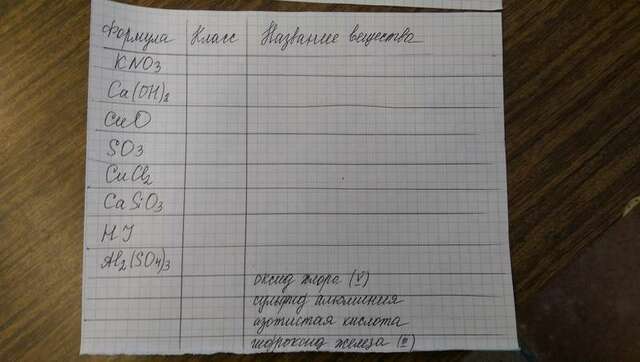 Формула Класс Название вещества
KNO3
Ca(OH)2
CuO
SO3
CuCl2
CaSiO3
HJ
Al2(SO4)3
оксид хлора (V)
сульфид алюминия
азотистая кислота
гидроксид железа (II)